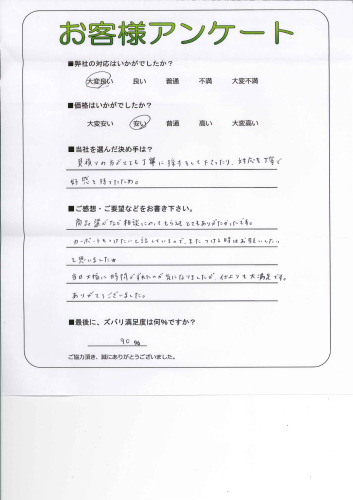 お客様アンケート
■弊社の対応はいかがでしたか?
大変良い 良い 普通 不満 大変不満
■価格はいかがでしたか?
大変安い 安い 普通 高い 大変高い
■当社を選んだ決め手は?
見積りの方がとても丁寧に接客をして下さったり、対応も丁寧で
好感を持てたため。
■ご感想・ご要望などをお書き下さい。
商品選びなど相談にのってもらえとてもありがたかったです。
カーポートもつけたいと話しているので、またつける時はお願いしたい
と思いました。
当日大幅に時間がずれたのが気になりましたが、仕上りも大満足です。
ありがとうございました。
■最後に、ズバリ満足度は何%ですか?
90 %
ご協力頂き、誠にありがとうございました。